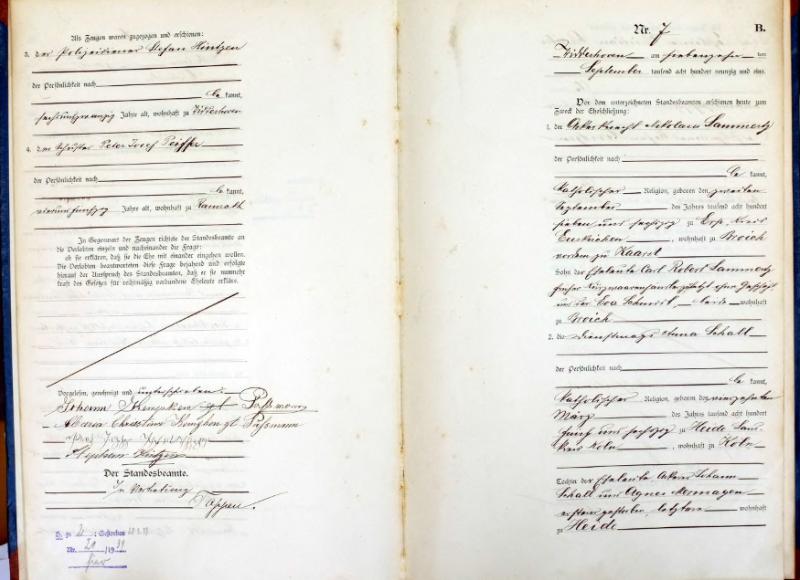 Als Zeugen waren zugezogen und erschienen:
3. der Polizeidiener Stefan Hintzen
der Persönlichkeit nach
be kannt,
sechsundzwanzig Jahre alt, wohnhaft zu Büttenhoven
4. der Schuster Peter Josef Peiffer
der Persönlichkeit nach
be kannt,
vierundfünfzig Jahre alt, wohnhaft zu Ramrath
In Gegenwart der Zeugen richtete der Standesbeamte an
die Verlobten einzeln und nacheinander die Frage:
ob sie erklären, daß sie die Ehe mit einander eingehen wollen.
Die Verlobten beantworteten diese Frage bejahend und erfolgte
hierauf der Ausspruch des Standesbeamten, daß er sie nunmehr
kraft des Gesetzes für rechtmäßig verbundene Eheleute erkläre.
Vorgelesen, genehmigt und unterschrieben.
Johann gt Paßmann
Maria Christine gt Paßmann
Peter Josef
Stephan Hintzen
Der Standesbeamte.
In Vertretung
Toppen.
zu : Gestorben
Nr. /19
Nr. 7 B.
am siebenzehnten
September tausend acht hundert neunzig und eins.
Vor dem unterzeichneten Standesbeamten erschienen heute zum
Zweck der Eheschließung:
1. der Ackerknecht Nikolaus Lammertz
der Persönlichkeit nach
be kannt,
katholischer Religion, geboren den zweiten
September des Jahres tausend acht hundert
sieben und sechszig zu Erp, Kreis
Euskirchen, wohnhaft zu Broich
vordem zu Kaarst
Sohn der Eheleute Carl Robert Lammertz
früher Kurzwaarenhändler, jetzt ohne Geschäft
und der Eva Schmidt, beide wohnhaft
zu Broich
2. die Dienstmagd Anna Schall
der Persönlichkeit nach
be kannt,
katholischer Religion, geboren den vierzehnten
März des Jahres tausend acht hundert
fünf und sechszig zu Heide Land-
kreis Köln, wohnhaft zu Köln
Tochter der Eheleute, Ackerer Johann
Schall und Agnes Mermagen
ersterer gestorben, letztere wohnhaft
zu Heide